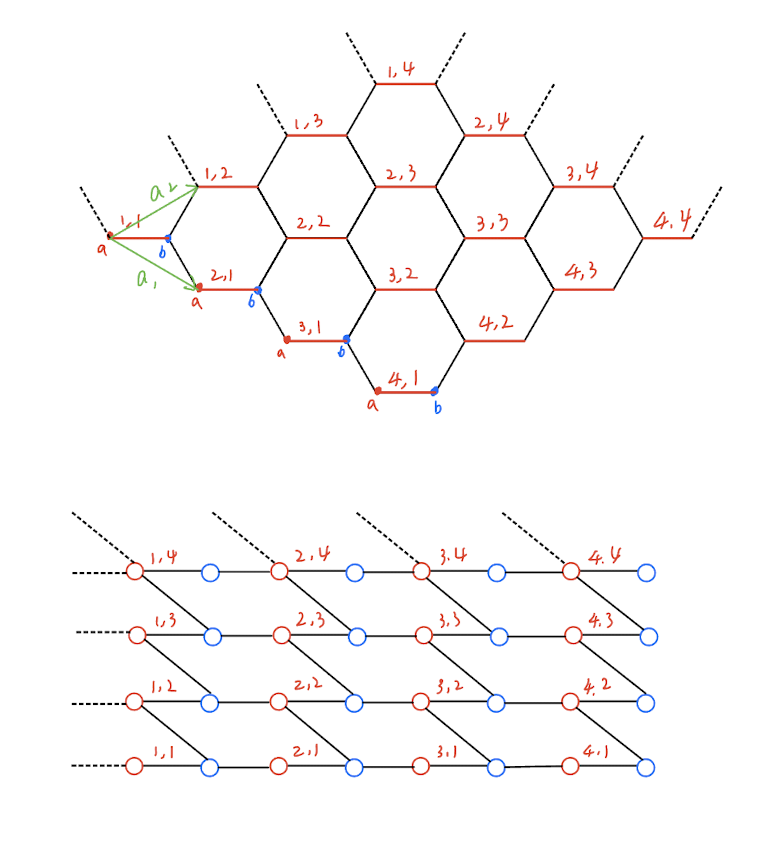 1,4
1,3
2,4
1,2
2,3
3,4
a2
1,1
2,2
3,3
4.4
a
b
a1
2,1
3,2
4,3
a
b
3,1
4,2
a
b
4,1
a
b
1,4 2,4 3.4 4.4
1,3 2,3 3,3 4.3
1,2 2,2 3,2 4.2
1,1 2,1 3.1 4.1